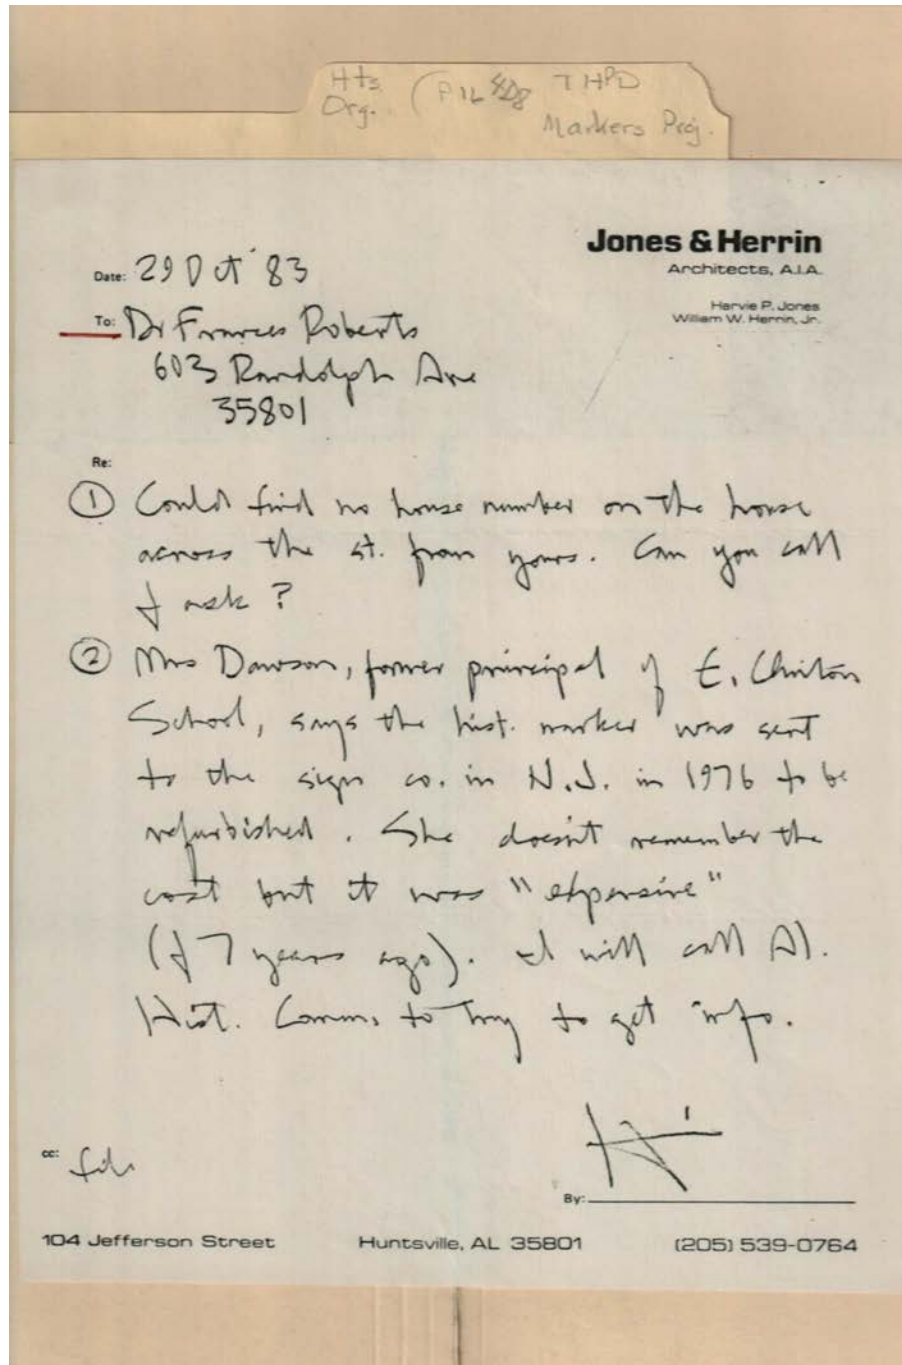 Hts.
Org.
THPD
Markers Proj.
Jones & Herrin
Architects, A.I.A.
Harvie P. Jones
William W. Herrin, Jr.
Date: 29 Oct '83
To: Dr Frances Roberts
603 Randolph Ave
35801
Re:
① Could find no house number on the house
across the st. from yours. Can you call
& ask?
② Mrs Dawson, former principal of E. Clinton
School, says the hist. marker was sent
to the sign co. in N.J. in 1976 to be
refurbished. She doesn't remember the
cost but it was "expensive"
(& 7 years ago). I will call Al.
Hist. Comm. to try to get info.
cc: file
By:
104 Jefferson Street Huntsville, AL 35801 (205) 539-0764